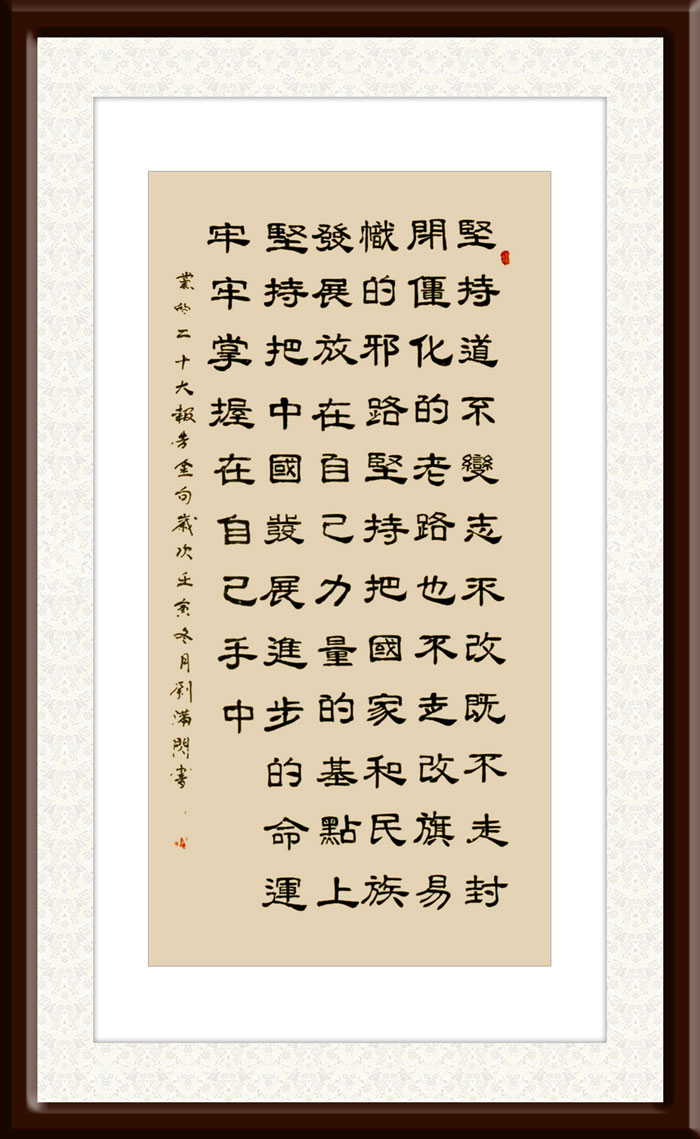 堅持道不變志不改既不走封
閉僵化的老路也不走改旗易
幟的邪路堅持把國家和民族
發展放在自己力量的基點上
堅持把中國發展進步的命運
牢牢掌握在自己手中
黨的二十大報告金句歲次壬寅冬月劉滿書